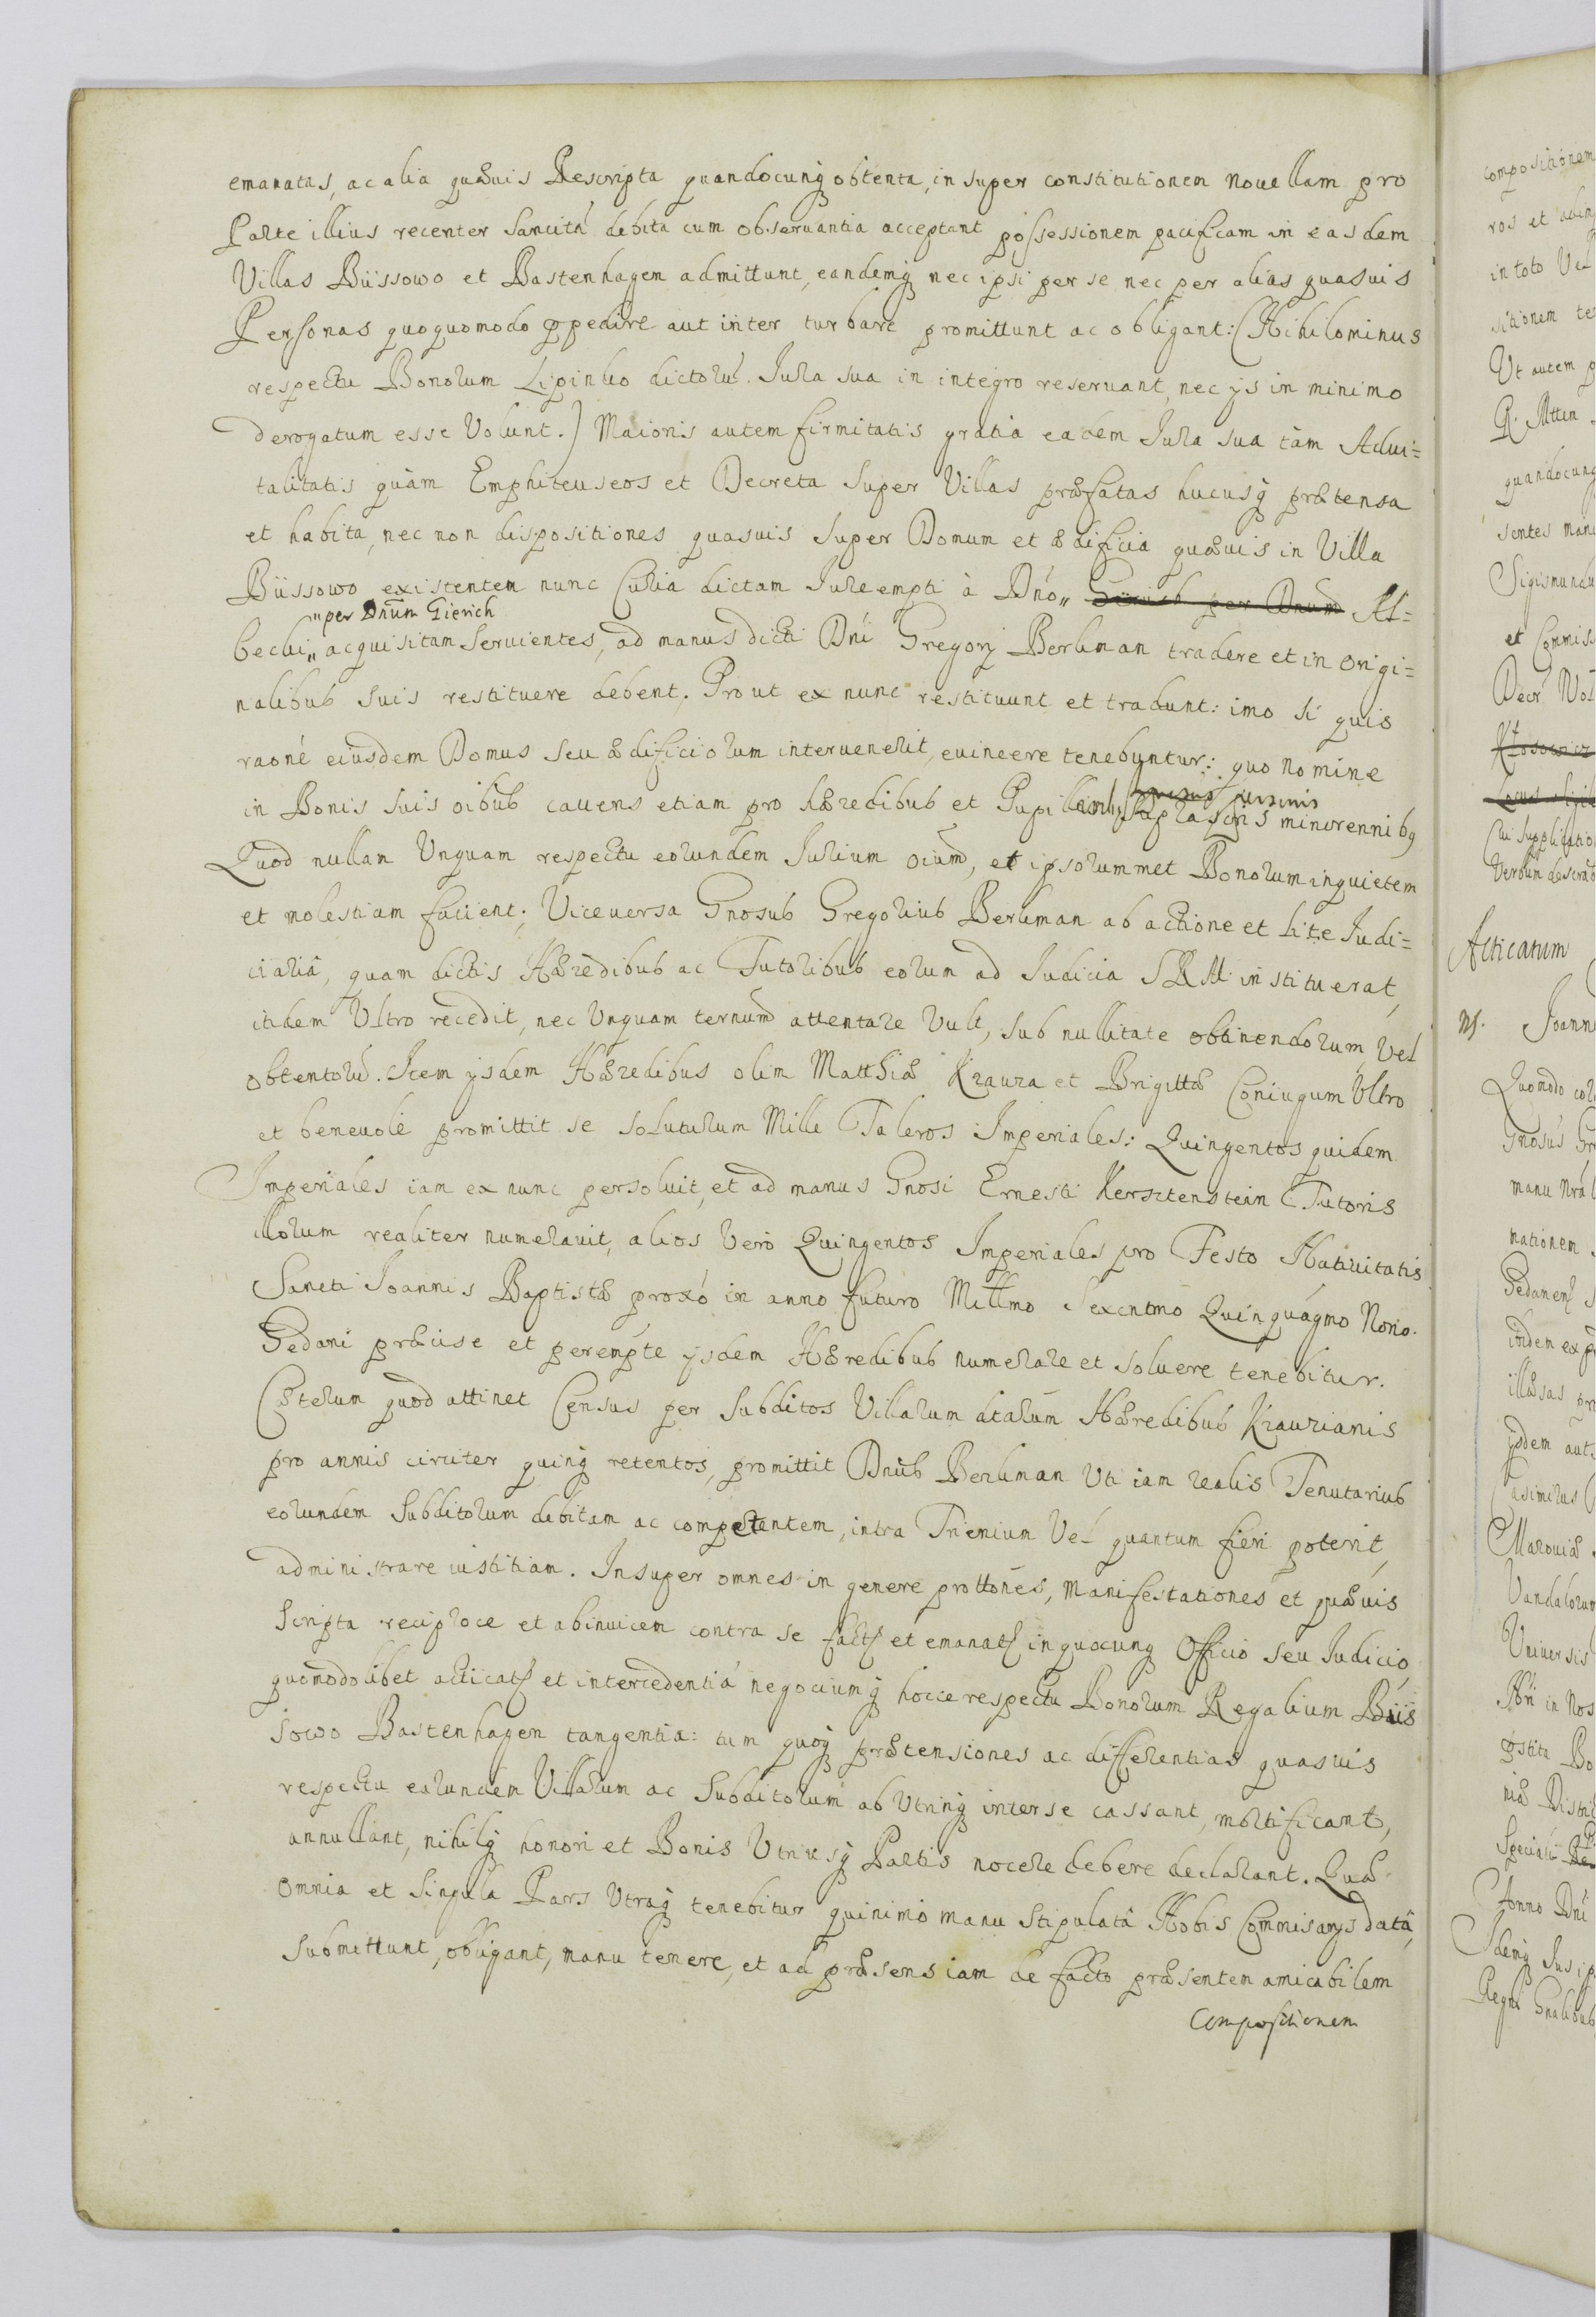 emanatas, ac alia quævis Rescripta quandocunq́ obtenta, in super constitutionem novellam pro
Parte illius recenter Sancitã debita cum observantia acceptant possessionem pacificam in easdem
Villas Büssowo et Bastenhagen admittunt, eandemq́ nec ipsi per se nec per alias quasvis
Personas quoquomodo ppedire aut inter turbare promittunt ac obligant: (Nihilominus
respectu Bonorum Lipinko dictorũ. Jura sua in integro reservant, nec ijs in minimo
derogatum esse Volunt.) Maioris autem firmitatis gratia eadem Jura sua tàm Advi=
talitatis quàm Emphiteuseos et Decreta Super Villas præfatas hucusq́ prætensa
et habita, nec non dispositiones quasvis Super Domum et ædificia quævis in Villa
Büssowo existentem nunc Curia dictam Jure empti à Dńo„ Gierich per Dnum Al=
„per Dnum Gierich
becki„ acquisitam Servientes, ad manus dicti Dńi Gregorij Berkman tradere et in origi=
nalibus suis restituere debent. Prout ex nunc restituunt et tradunt: imo si quis
raoné eiusdem Domus seu ædificiorum intervenerit, evincere tenebuntur: quo nomine
in Bonis suis oibus cavens etiam pro hæredibus et Pupill minorennibꝫ
Quod nullam Unquam respectu eorundem Jurium oium, et ipsorummet Bonorum inquietem
et molestiam facient; Viceversa Gnosus Gregorius Berkman ab actione et lite Judi=
ciariâ, quam dictis Hæredibus ac Tutoribus eorum ad Judicia SRM instituerat,
itidem Ultro recedit, nec Unquam ternum attentare Vult, sub nullitate obtinendorum Vel
obtentorũ. Item ijsdem Hæredibus olim Matthiæ Krauza et Brigittæ Coniugum Ultro
et benevolè promittit se soluturum Mille Taleros Imperiales: Quingentos quidem
Imperiales iam ex nunc persoluit, et ad manus Gnosi Ernesti Kersztenstein Tutoris
illorum realiter numeravit, alios Verò Quingentos Imperiales pro Festo Nativitatis
Sancti Joannis Baptistæ proxó in anno futuro Millmo Sexcntmo Quinquágmo Nono.
Gedani præcise et perempte ijsdem Hæredibus numerare et solvere tenebitur.
Cæterum quod attinet Census per Subditos Villarum dtarum Hæredibus Krauzianis
pro annis circiter quinq́ retentos, promittit Dnus Berkman Uti iam realis Tenutarius
eorundem Subditorum debitam ac competentem, intra Trienium Vel quantum fieri poterit,
administrare iustitiam. Insuper omnes in genere prottones, Manifestationes et quævis
Scripta reciproce et abinvicem contra se facta et emanata in quocunq́ Officio seu Judicio
quomodolibet acticata et intercedentia negociumq́ hocce respectu Bonorum Regalium Büs
sowo Bastenhagen tangentia: tum quoq́ prætensiones ac differentias quasvis
respectu earundem Villarum ac Subditorum ab Utrinq́ inter se cassant, mortificant,
annullant, nihilq́ honori et Bonis Utriusq́ Partis nocere debere declarant. Quæ
Omnia et Singula Pars Utraq́ tenebitur quinimo manu Stipulatâ Nobis Commissarijs datâ,
Submittunt, obligant, manu tenere, et ad præsens iam de facto præsentem amicabilem
Compositionem
compositionem
ros et
in toto Vel
sitionem
Ut autem
quandocunq́
sentes
Sigismundu
et Commiss
Decr
Cui Supplicatio
Verbum
Acticatum
Joann
Quomodo
Gnosus
manu
mationem
Gedanen
itidem
illæsas
Casimirus
Mazoviæ
Vandalorum
Universis
in Nos
Speciali
Anno Dni